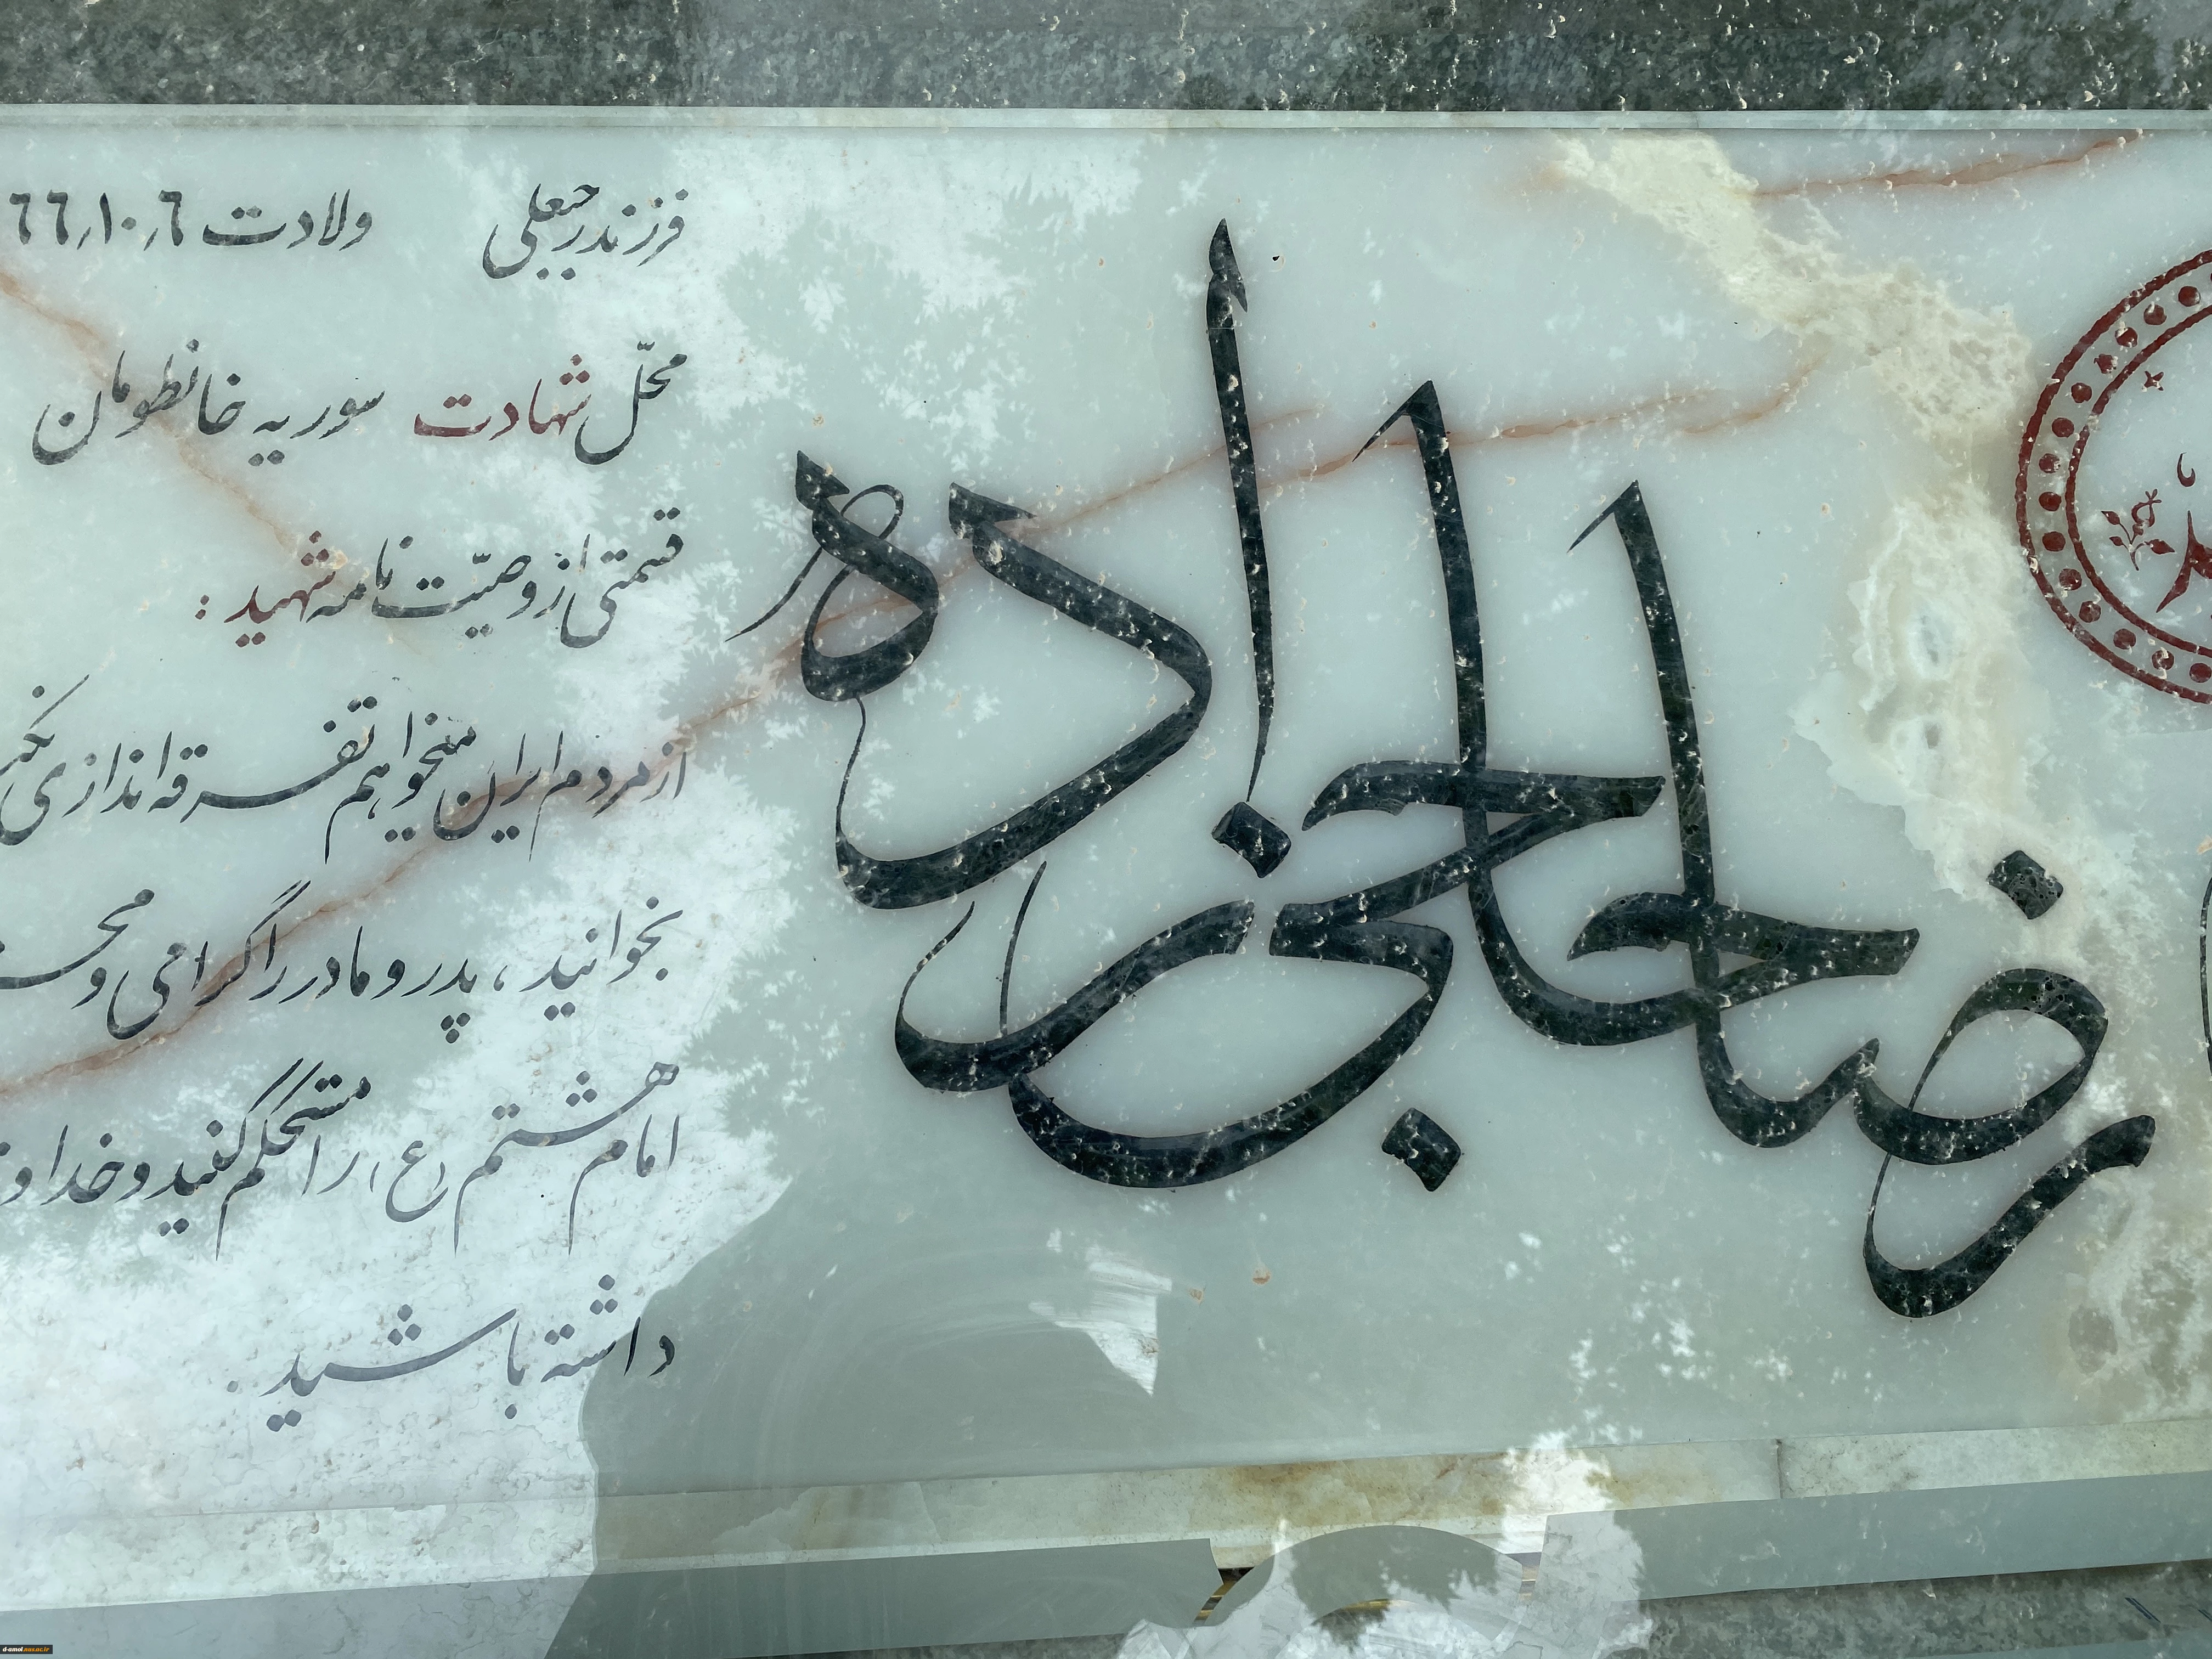 رضا حاجی زاده
فرزند رجبعلی ولادت ٦٦٫١٠٫٦
محلّ شهادت سوریه خانطومان
قسمتی از وصیّت نامه شهید :
از مردم ایران میخواهم تفرقه اندازی
بخوانید ، پدر و مادر را گرامی و
امام هشتم (ع) را مستحکم کنید و
داشته باشید .
d-amol.ausac.ir